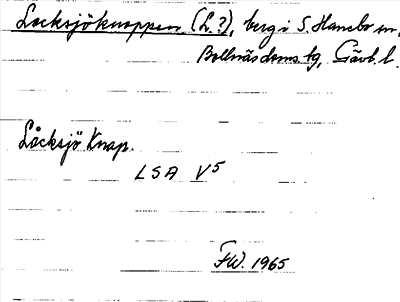 Locksjöknoppen (L.?), berg i S. Hanebo sn,
Bollnäs doms. tg, Gävl. l.
Låcksjö Knap.
LSA V5
FW. 1965